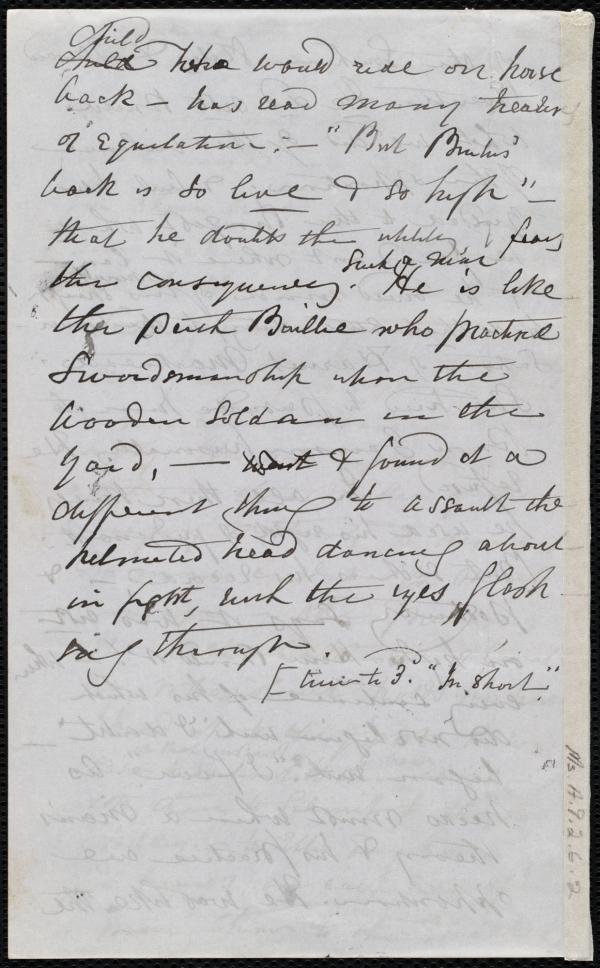 child
child who would ride on horse
back – has read many treatises
of Equitation: – "But Brutus'
back is so live & so high" –
that he doubts the utility fears
the consequences. Such a man He is like
the Perth Baillie who practised
Swordsmanship upon the
wooden Soldan in the
yard, — went & found it a
different thing to assault the
helmeted head dancing about
in fight, with the eyes flash
ing through.
[turn to 3d. "In short."
Ms. A.9.2.6.2